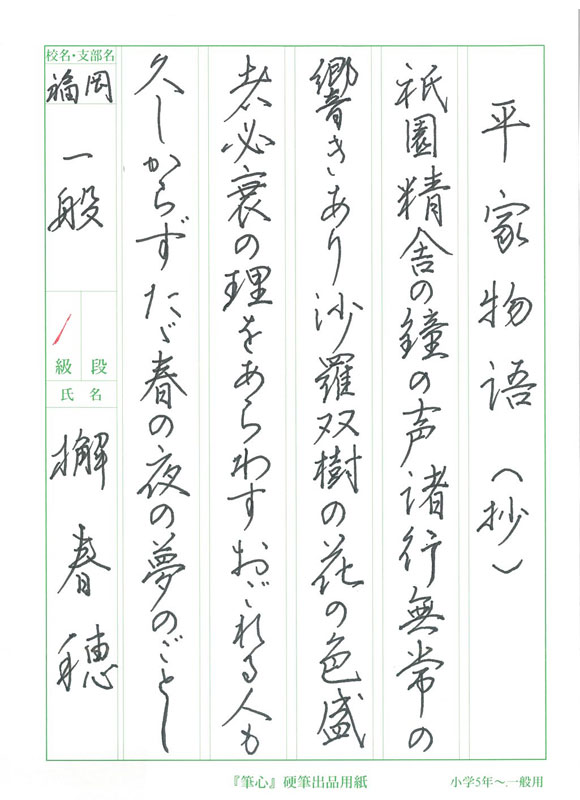 平家物語(抄)
祇園精舎の鐘の声諸行無常の
響きあり沙羅双樹の花の色盛
者必衰の理をあらわすおごれる人も
久しからずたゞ春の夜の夢のごとし
校名・支部名
福岡
一般
1
段級
氏名
春穂
『筆心』硬筆出品用紙
小学5年〜一般用